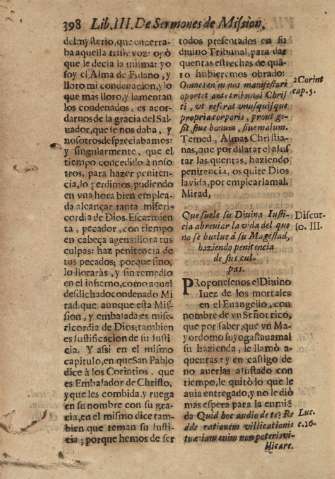 398 Lib. III. De Sermones de Mission,
del mysterio, que encerra-
ba aquella triste voz: oyò
que le decia la misma: yo
soy el Alma de Fulano, y
lloro mi condenacion, y lo
que mas lloro, y lamentan
los condenados es acor-
darnos de la gracia del Sal-
vador, que se nos daba, y
nosotros despreciabamos:
y singularmente, que el
tiempo concedido à noso-
tros, para hazer peniten-
cia, lo perdimos, pudiendo
en vna hora bien emplea-
da alcançar tanta miseri-
cordia de Dios. Escarmien
ta, pecador, con tiempo
en cabeça agena: llora tus
culpas: haz penitencia de
tus pecados; porque sino,
lo lloraràs, y sin remedio
en el infierno, como aquel
desdichado condenado. Mi
rad, que aunque esta Mis-
sion, y embaxada es mise-
ricordia de Dios; tambien
es justificacion de su justi-
cia. Y assi en el mismo
capitulo, en que San Pablo
dice à los Corintios, que
es Embaxador de Christo,
y que les combida, y ruega
en su nombre con su gra-
cia, en el mismo dice tam-
bien que teman su justi-
cia; porque hemos de ser
todos presentados en su
divino Tribunal, para dar
quentas estrechas de quã-
to hubieremos obrado:
Omnes enim nos manifestari
oportet ante tribunal Chris-
ti, ut referat unusquisque
propria corporis, prout ges-
sit, sive bonum, sive malum.
Temed, Almas Christia-
nas, que por dilatar el ajus-
tar las quentas, haziendo
penitencia, os quite Dios
la vida, por emplearla mal.
Mirad,
2 Corint
cap. 5.
Que suele su Divina Justi-
cia abreviar la vida del que
no se buelve à su Magestad,
haziendo penitencia
de sus cul-
pas.
Discur-
so. III.
PRoponesenos el Divino
Juez de los mortales
en el Evangelio, con
nombre de vn Señor rico,
que por saber, que vn Ma-
yordomo suyo gastaua mal
su hazienda, le llamò à
quentas: y en castigo de
no averlas ajustado con
tiempo, le quitò lo que le
auia entregado, y no le diò
mas espera para la enmiẽ
da Quid hoc audio de te? Re
dde rationem villicationis
tuæ: iam enim non poteris vi-
llicare.
Luc.
c. 16.